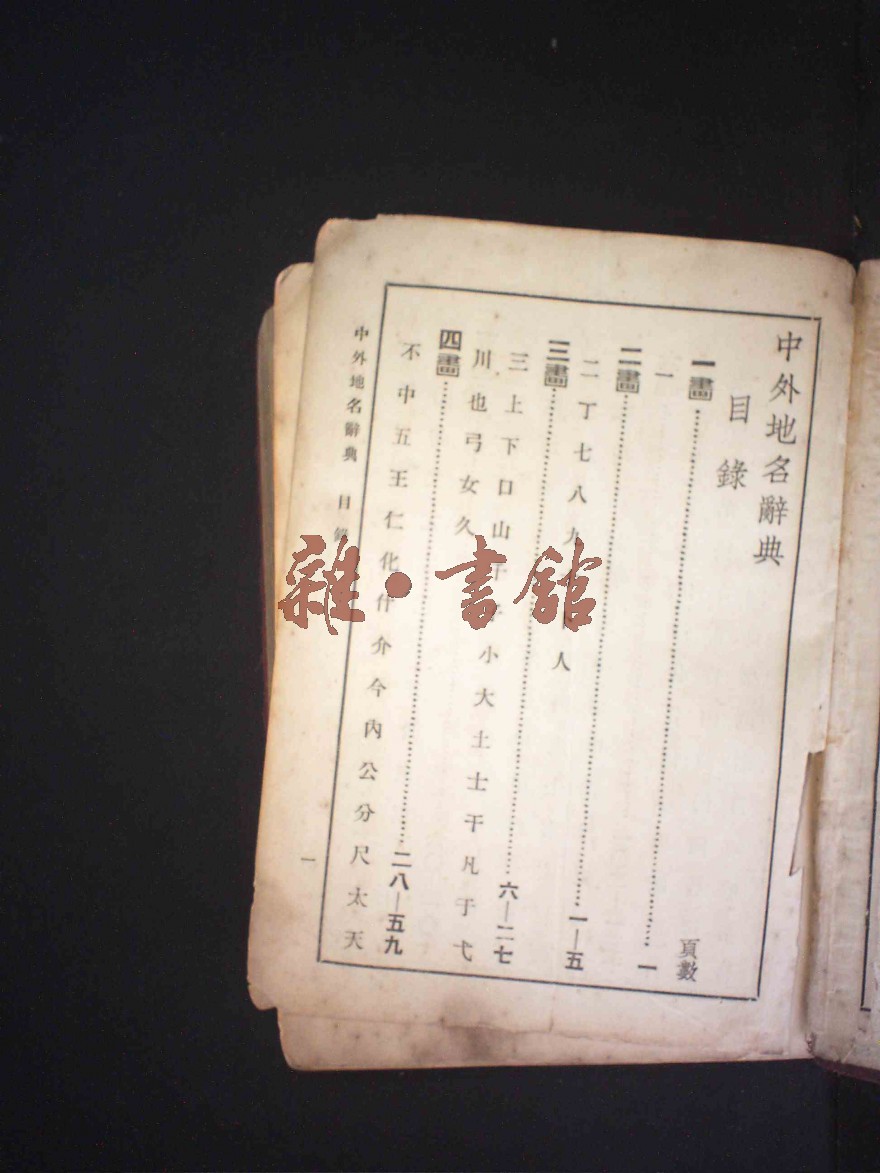 中外地名辭典
目錄
頁數
一畫……一
一
二畫……一—五
二丁七八九 人
三畫……六—二七
三上下口山于 小大土士干凡于弋
川也弓女久
四畫……二八—五九
不中五王仁化什介今內公分尺太天
中外地名辭典 目
一
雜·書館